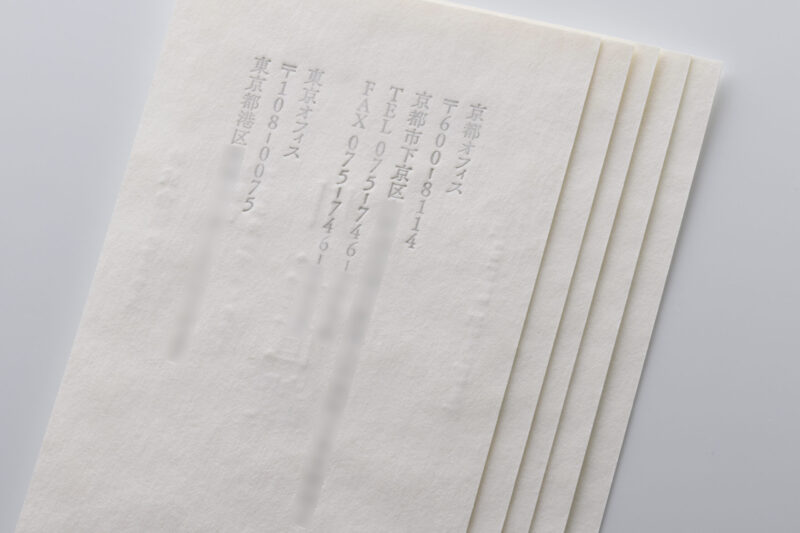 京都オフィス
〒600-8114
京都市下京区
TEL 075-746-
FAX 075-746-
東京オフィス
〒108-0075
東京都港区